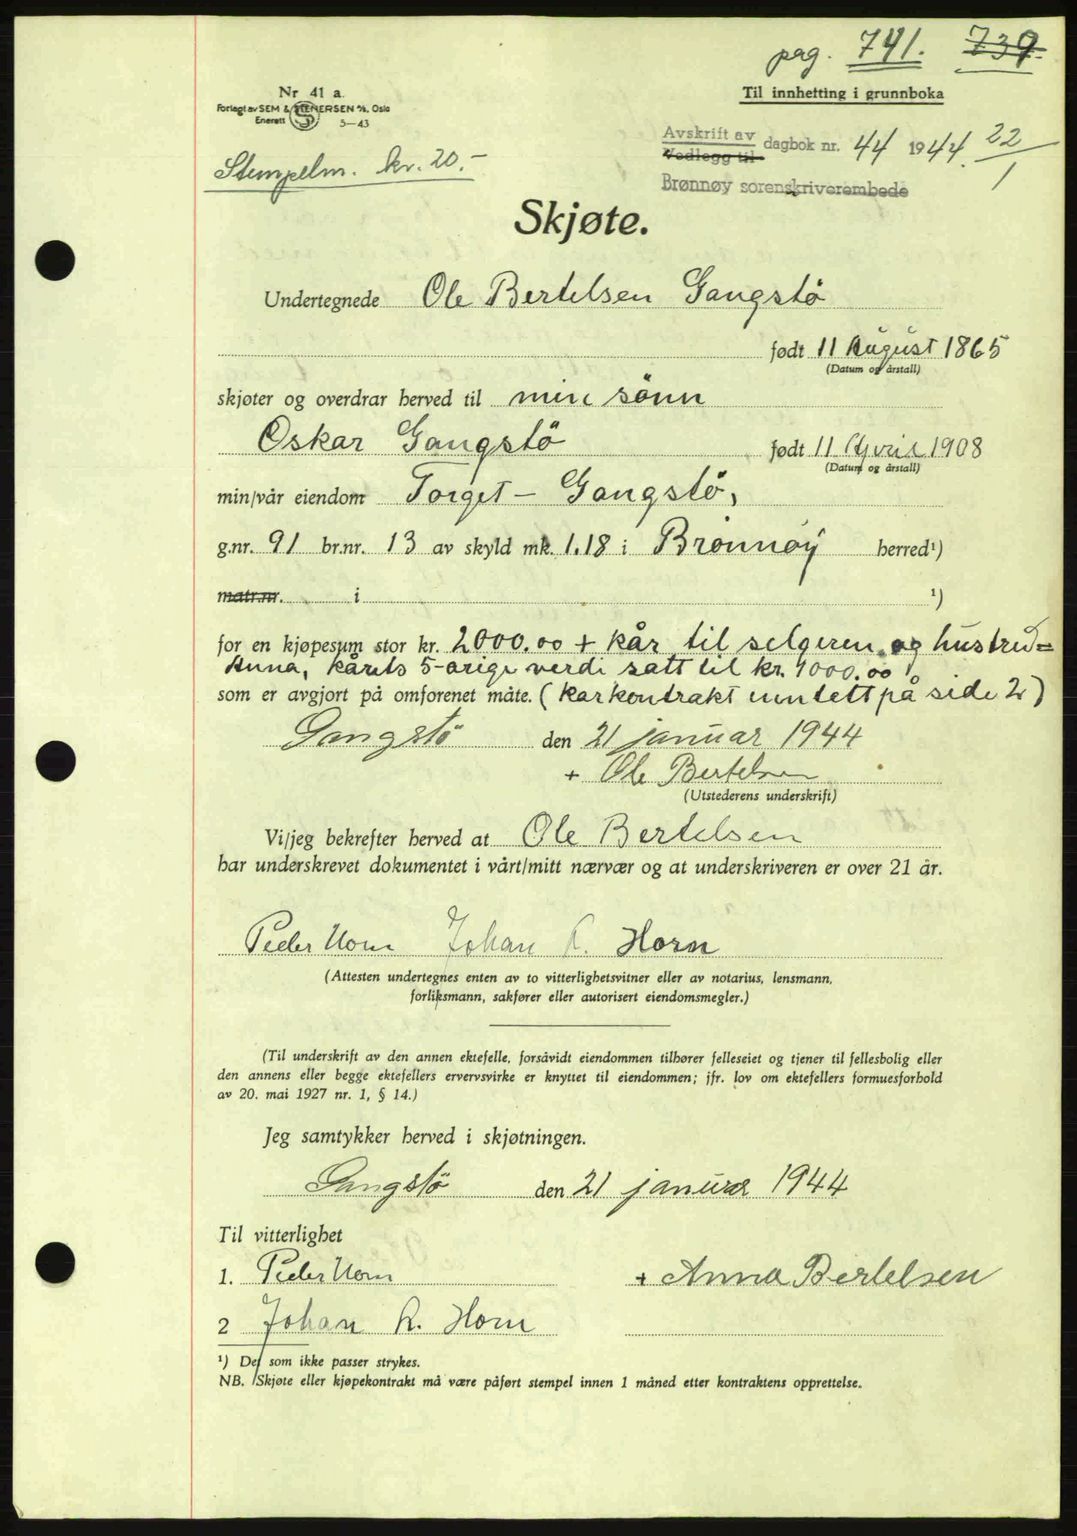 pag. 741. 739.
Til innhetting i grunnboka
Nr 41 a.
Forlagt av SEM & STENERSEN A/S, Oslo
Enerett 5-43
Avskrift av
Vedlegg til dagbok nr. 44 1944. 22/1
Brønnøy sorenskriverembede
Stempelm. kr. 20.-
Skjøte.
Undertegnede Ole Bertelsen Gangstö
født 11 August 1865
(Datum og årstall)
skjøter og overdrar herved til min sönn
Oskar Gangstö født 11 April 1908
(Datum og årstall)
min/vår eiendom Torget - Gangstö,
g.nr. 91 br.nr. 13 av skyld mk. 1.18 i Brönnöy herred¹)
matr.nr. i ¹)
for en kjøpesum stor kr. 2000.00 + kår til selgeren og hustru=
Anna, kårets 5-årige verdi satt til kr. 1000.00
som er avgjort på omforenet måte. (karkontrakt inntatt på side 2)
Gangstö den 21 januar 1944
+ Ole Bertelsen
(Utstederens underskrift)
Vi/jeg bekrefter herved at Ole Bertelsen
har underskrevet dokumentet i vårt/mitt nærvær og at underskriveren er over 21 år.
Peder Horn Johan R. Horn
(Attesten undertegnes enten av to vitterlighetsvitner eller av notarius, lensmann,
forliksmann, sakfører eller autorisert eiendomsmegler.)
(Til underskrift av den annen ektefelle, forsåvidt eiendommen tilhører felleseiet og tjener til fellesbolig eller
den annens eller begge ektefellers ervervsvirke er knyttet til eiendommen; jfr. lov om ektefellers formuesforhold
av 20. mai 1927 nr. 1, § 14.)
Jeg samtykker herved i skjøtningen.
Gangstö den 21 januar 1944
Til vitterlighet
1. Peder Horn + Anna Bertelsen
2 Johan R. Horn
¹) Det som ikke passer strykes.
NB. Skjøte eller kjøpekontrakt må være påført stempel innen 1 måned etter kontraktens opprettelse.